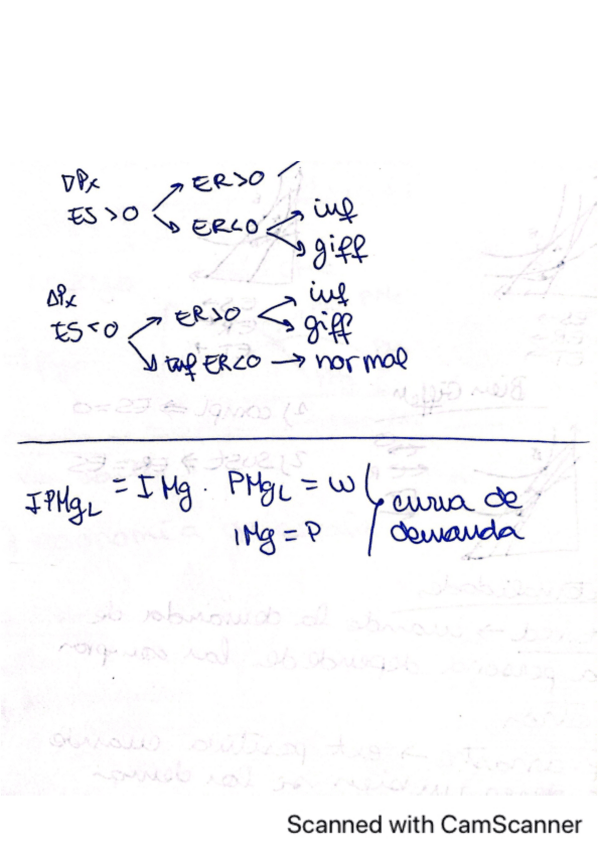 ∇Px
ES >0 → ER>0
→ ER<0 → inf
→ giff
ΔPx
ES<0 → ER>0 → inf
→ giff
→ ER<0 → normal
IPMgL = IMg . PMgL = w
IMg = P
curva de
demanda
Scanned with CamScanner